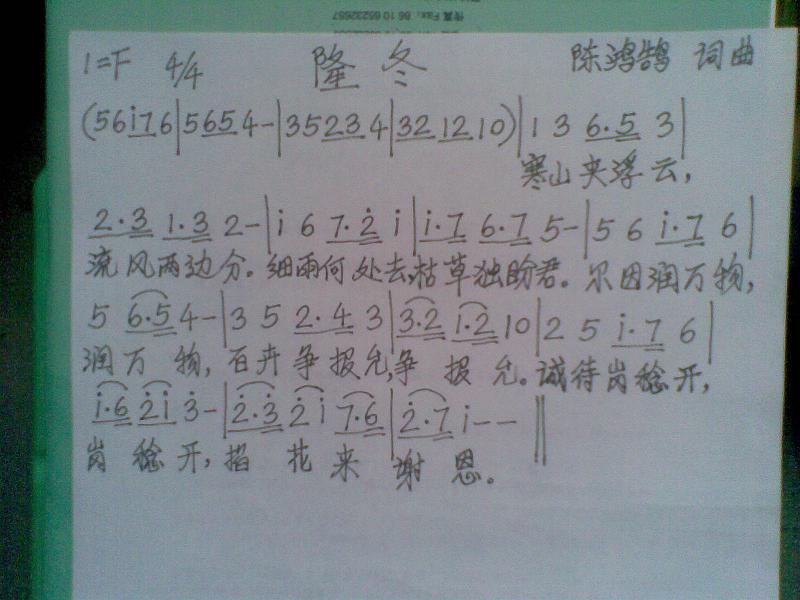 传真 Fax: 86 10 65232657
1=F 4/4 隆冬 陈鸿鹄 词曲
(56i76|5654-|35234|321210)|136.53|
寒山夹浮云,
2.31.32-|i67.2̇i|i.76.75-|56i.76|
流风两边分。细雨何处去,枯草独盼君。尔因润万物,
56.54-|352.43|3.2i.210|25i.76|
润万物,百卉争报允,争报允。诚待岗稔开,
i.62̇i3̇-|2̇.3̇2̇i7.6|2̇.7i--‖
岗稔开,掐花来谢恩。